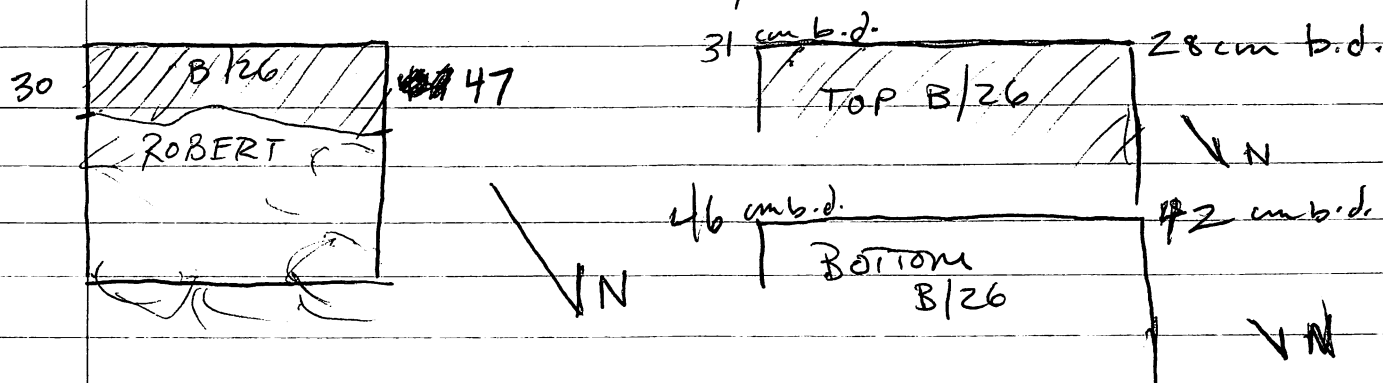 30 B/26 47
ROBERT
N
31 cm b.d. 28 cm b.d.
TOP B/26
N
46 cm b.d. 42 cm b.d.
BOTTOM
B/26
N